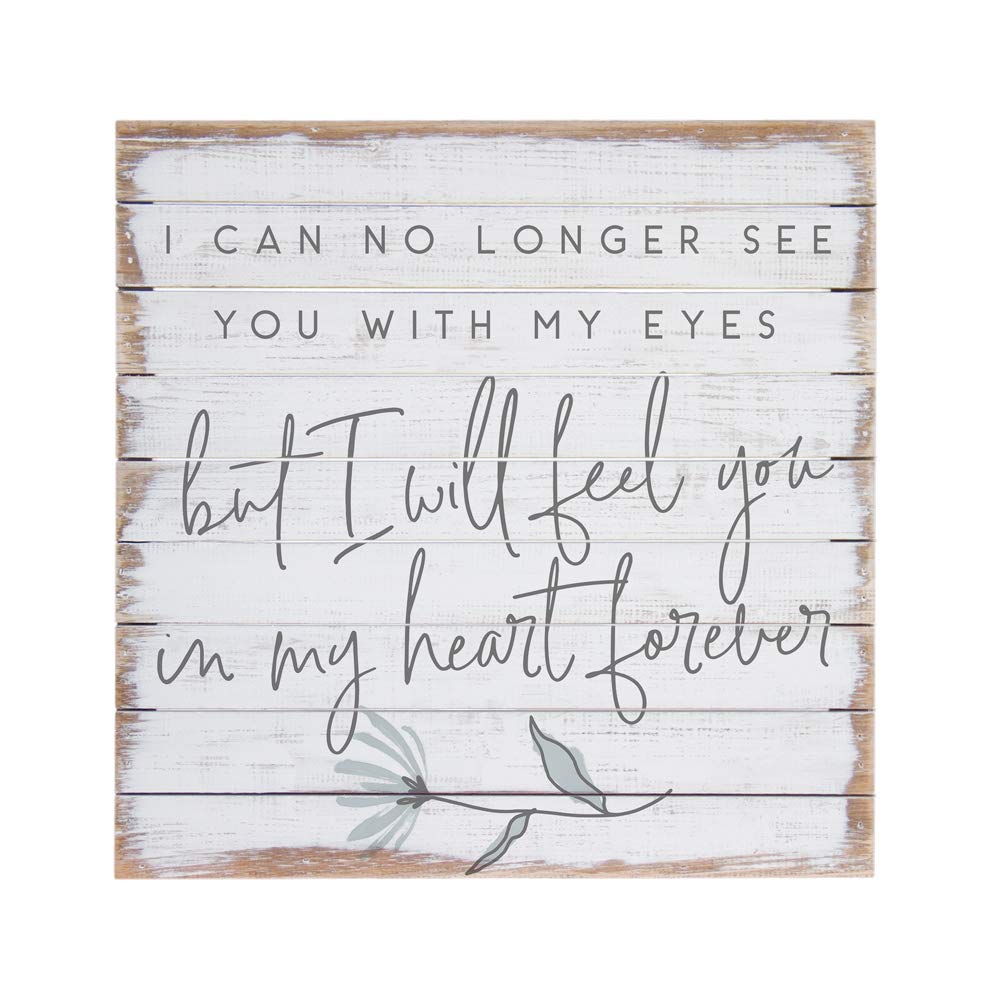 I CAN NO LONGER SEE
YOU WITH MY EYES
but I will feel you
in my heart forever